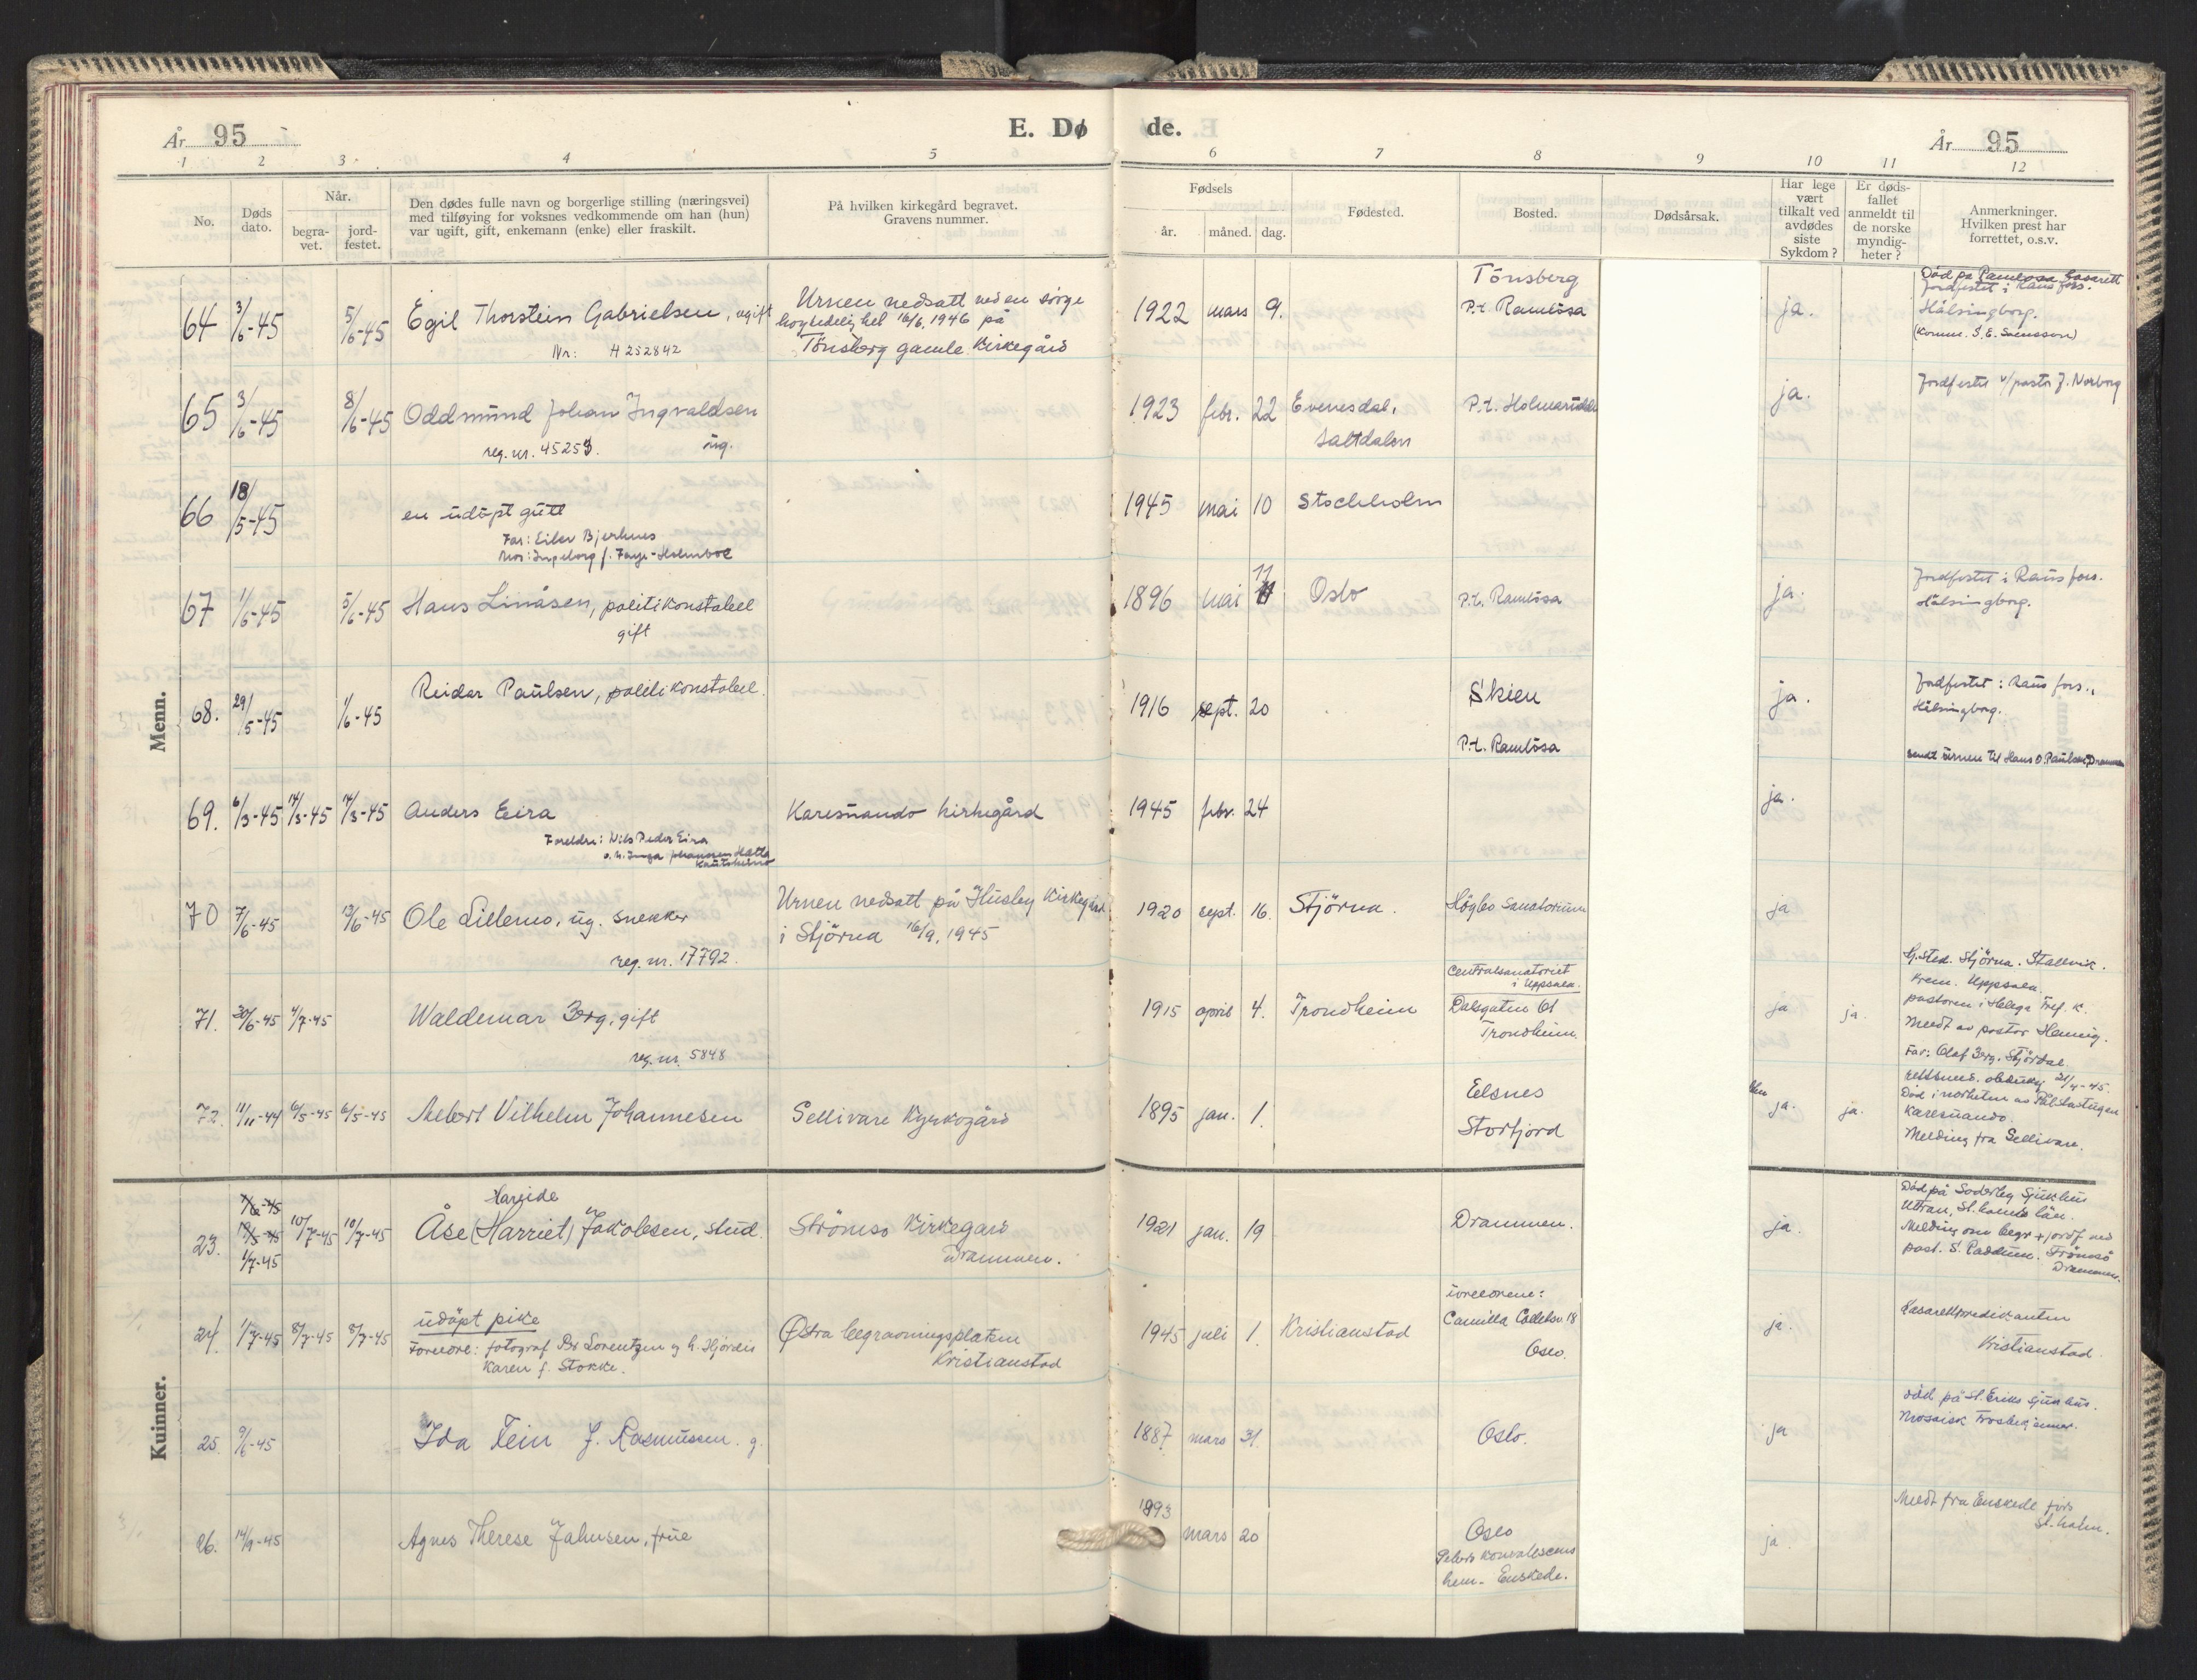 År 95
E. Dø
de.
År 95
1 2 3 4 5 6 7 8 9 10 11 12
No.
Døds dato.
Når.
begra-vet.
jord-festet.
Den dødes fulle navn og borgerlige stilling (næringsvei)
med tilføying for voksnes vedkommende om han (hun)
var ugift, gift, enkemann (enke) eller fraskilt.
På hvilken kirkegård begravet.
Gravens nummer.
Fødsels
år. måned. dag.
Fødested.
Bosted.
Dødsårsak.
Har lege
vært
tilkalt ved
avdødes
siste
Sykdom?
Er døds-
fallet
anmeldt til
de norske
myndig-
heter?
Anmerkninger.
Hvilken prest har
forrettet, o.s.v.
Menn.
64 3/6-45 5/6-45 Egil Thorstein Gabrielsen, ugift
Nr: H 252842
Urnen nedsatt ved en sørge
høytidelighet 16/6, 1946 på
Tönsberg gamle Kirkegård
1922 mars 9.
Tönsberg
P.t. Ramlösa
ja.
Död på Ramlösa Lasarett
Jordfestet i Raus förs.
Hälsingborg.
(Komm. S. E. Svensson)
65 3/6-45 8/6-45 Oddmund Johan Ingvaldsen
reg. nr. 45253. ug.
1923 febr. 22 Evenesdal,
Saltdalen
P.t.
ja.
Jordfestet v/pastor J. Norborg
66 18/5-45 en udöpt gutt
Far: Eiler Bjerknes
Mor: Ingeborg f. Faye-Holmboe
1945 mai 10 Stockholm
67 1/6-45 5/6-45 Hans Linåsen, politikonstabel
gift
1896 mai 11 Oslo
P.t. Ramlösa
ja.
Jordfestet i Raus förs.
Hälsingborg.
68. 29/5-45 1/6-45 Reidar Paulsen, politikonstabel.
1916 sept. 20
Skien
P.t. Ramlösa
ja.
Jordfestet i Raus förs.,
Hälsingborg.
sendt urnen til Hans O. Paulsen, Drammen
69. 6/3-45 14/3-45 14/3-45 Anders Eira
Foreldre: Nils Peder Eira
o. h. Inga Johansen Hætta
Kautokeino
Karesuando kirkegård
1945 febr. 24
ja.
70 7/6-45 13/6-45 Ole Lillemo, ug. snekker
reg. nr. 17792.
Urnen nedsatt på Husby Kirkegård
i Stjörna 16/9, 1945
1920 sept. 16. Stjörna.
Högbo Sanatorium
ja
71. 30/6-45 4/7-45 Waldemar Berg, gift
reg. nr. 5848
1915 april 4. Trondheim
Centralsanatoriet
i Uppsala.
Dalsgaten 01
Trondheim.
ja ja.
G.sted. Stjörna. Stallvik.
Krem. Uppsala.
pastoren i Helga Tref. k.
Meldt av pastor Hennig.
Far: Olaf Berg. Stjördal
72. 11/11-44 6/5-45 6/5-45 Albert Vilhelm Johannesen
Gellivare Kyrkogård
1895 jan. 1.
Elsnes
Storfjord
ja. ja.
rettsmed. obduksj. 21/4-45.
Död i närheten av
Karesuando.
Melding fra Gellivare.
Kvinner.
23. 1/7-45 10/7-45 10/7-45
Hareide
Åse (Harriet) Jakobsen, stud.
Strömsö Kirkegård
Drammen.
1921 jan. 19
Drammen.
ja.
Död på Söderby Sjukhus
Uttran, St.holms län.
Melding om begr + jordf ved
past. S. Paddum. Strömsö
Drammen.
24. 1/7-45 8/7-45 8/7-45 udöpt pike
Foreldre: fotograf Per Lorentzen og h. Hjördis
Karen f. Stokke.
Östra begravningsplatsen
Kristianstad
1945 juli 1. Kristianstad
foreldrene:
Camilla Colletsv. 18
Oslo.
ja.
Lasarettpredikanten
Kristianstad
25. 9/6-45 Ida Fein f. Rasmussen. g.
1887 mars 31.
Oslo.
ja
död på St. Eriks sjukhus.
Mosaisk trosbekjenner.
26. 14/9-45 Agnes Therese Jahnsen, frue
1893 mars 20
Oslo
konvalescens
hem - Enskede.
ja.
Meldt fra Enskede förs
St.holm.